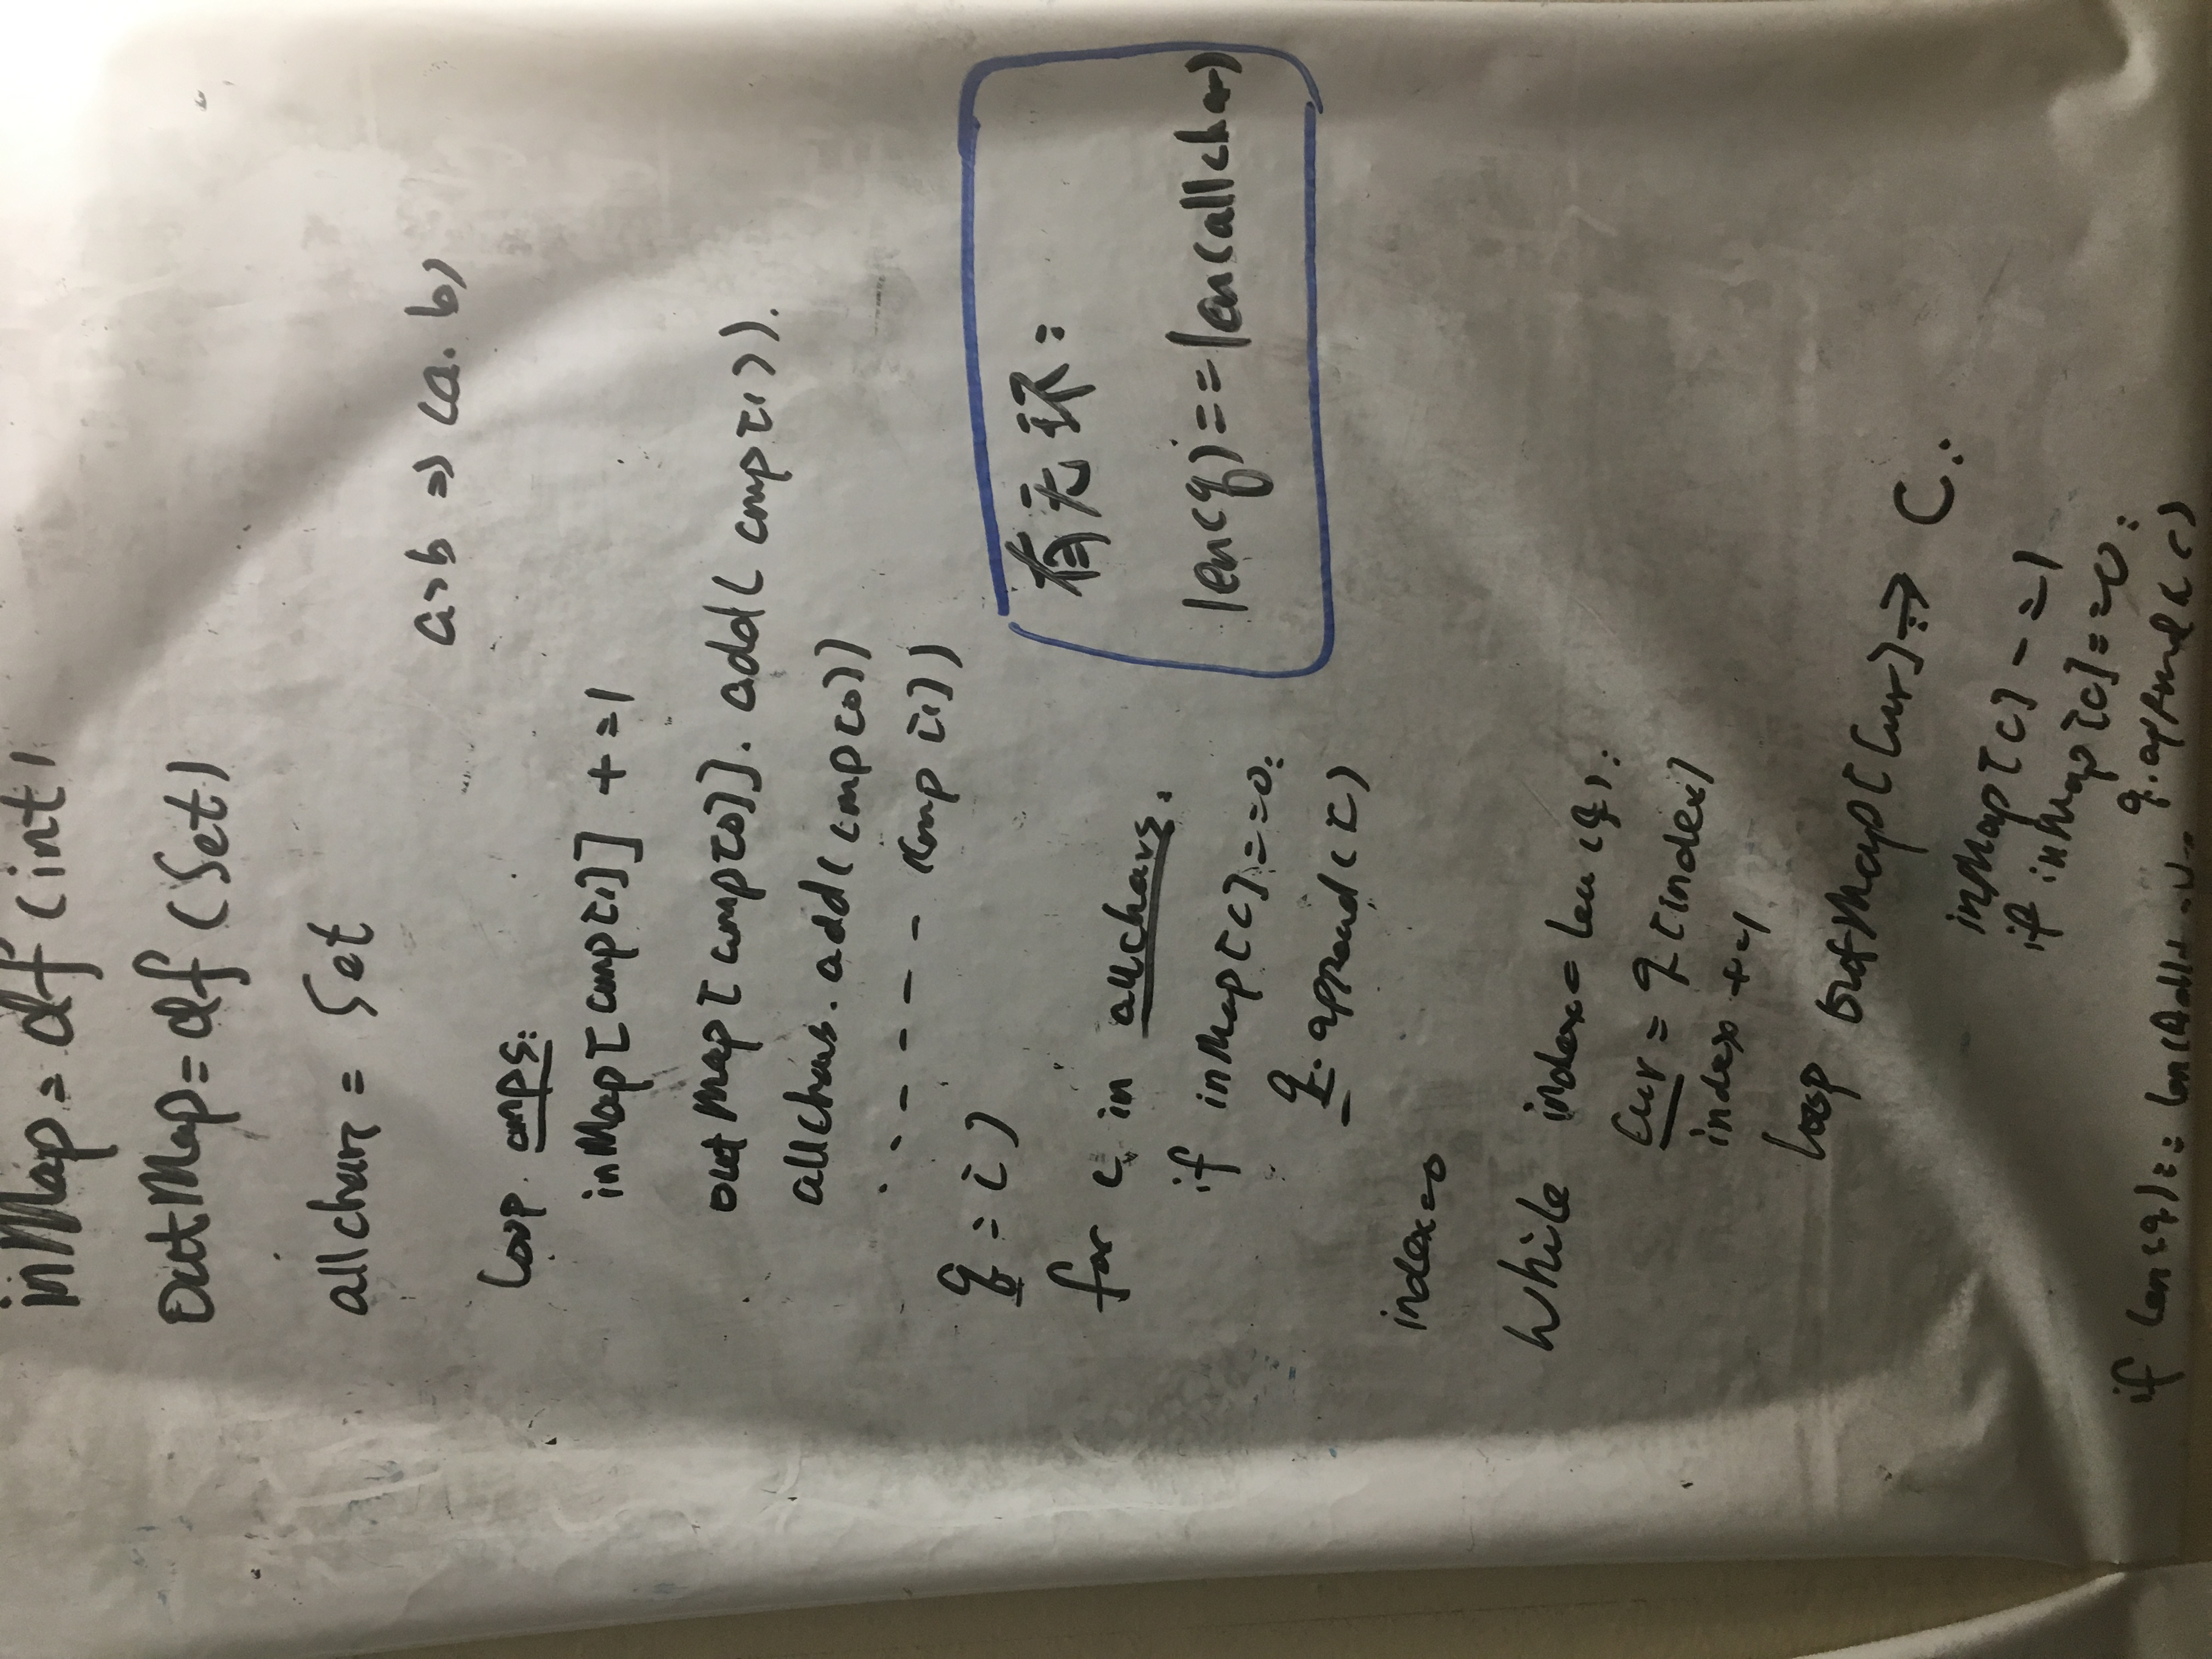 inMap = df(int)
outMap = df(Set)
allchars = Set
a>b => (a. b)
loop cmps:
inMap[cmp[1]] +=1
outMap[cmp[0]]. add( cmp[1]).
allchars. add(cmp[0])
- - - - - - (cmp [1])
q = []
有无环:
for c in allchars:
len(q)==len(allchar)
if inMap[c]==0:
q. append(c)
index=0
While index= len(q):
Cur = q[index]
index +=1
loop outMap[Cur]:=> C:
inMap[c] -=1
if inMap[c]==0:
q.append(c)
if len(q)==